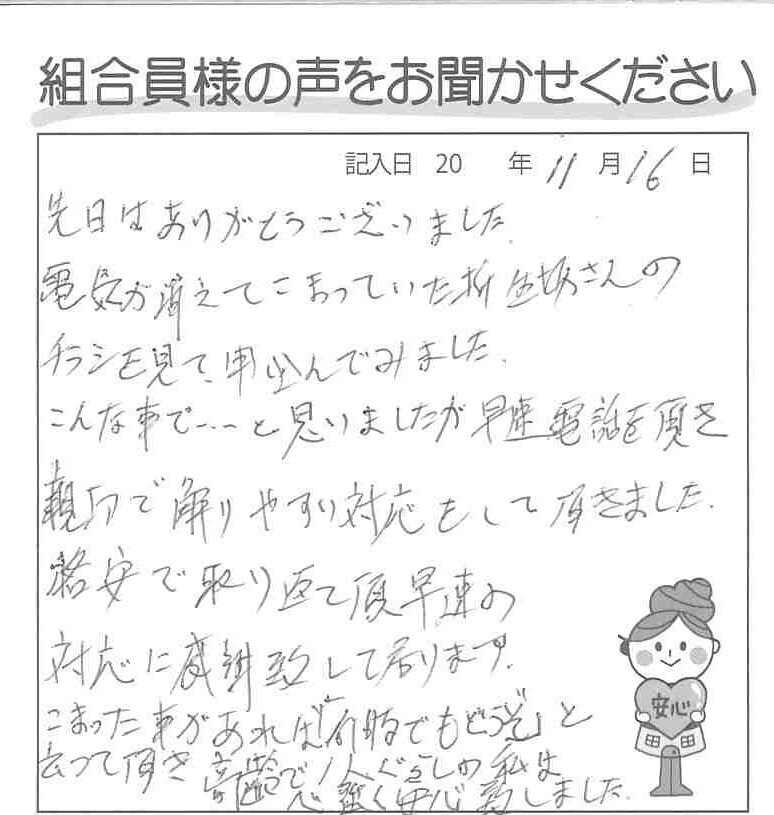 組合員様の声をお聞かせください
記入日 20 年 11 月 16 日
先日はありがとうございました。
電気が消えてこまっていた折 生協さんの
チラシを見て、申込んでみました、
こんな事で・・・と思いましたが早速電話を頂き
親切で解りやすい対応をして頂きました。
格安で取り 頂 早速の
対応に感謝致して居ります。
こまった事があれば「何時でもどうぞ」と
云って頂き 高齢で1人ぐらしの私は
心強く安心致しました。
安心